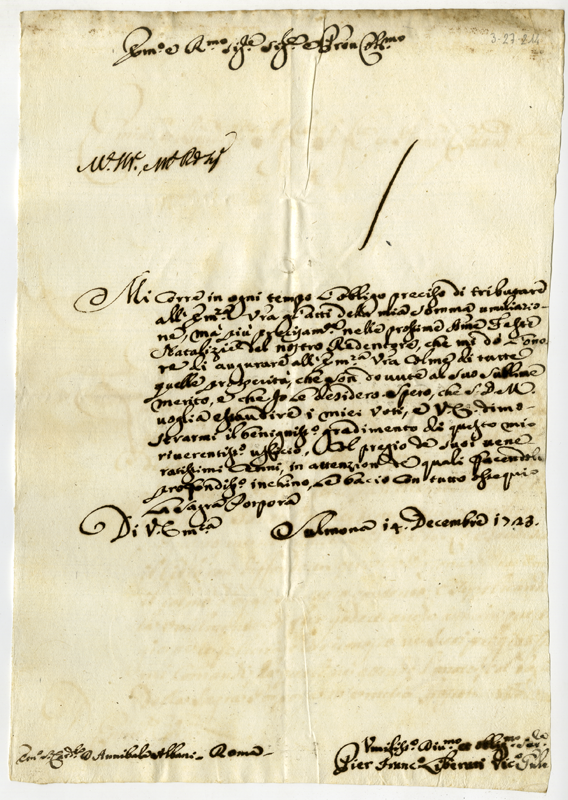 Em.º e R.mo Sig.re Sig.re e Pron Col.mo
3-27-24
Mi corre in ogni tempo l'obligo preciso di tributare
all'Em.za V.ra gl'atti della mia somma umiliazio-
ne, mà più precisam.te nelle prossime Sme Feste
Natalizie del nostro Redentore, che mi dà l'ono-
re di augurare all'Em.za V.ra colme di tutte
quelle prosperità, che son dovute al suo sublime
merito, e che Io le desidero. Spero, che S. D. M.
voglia esaudire i miei voti, e V. E. dimo-
strarmi il benignis.º gradimento di questo mio
riverentis.º ufficio, col pregio de suoi vene
ratissimi cenni, in attenzion de quali facendole
profondis.º inchino, le bacio con tutto ossequio
la Sagra Porpora
Di V. Em.za Sulmona 14. Decembre 1723.
Em.º Sig. Card.le Annibale Albani - Roma -
Umilis.º Div.mo et oblig.mo
Pier Franc.º Liberati Vic.º